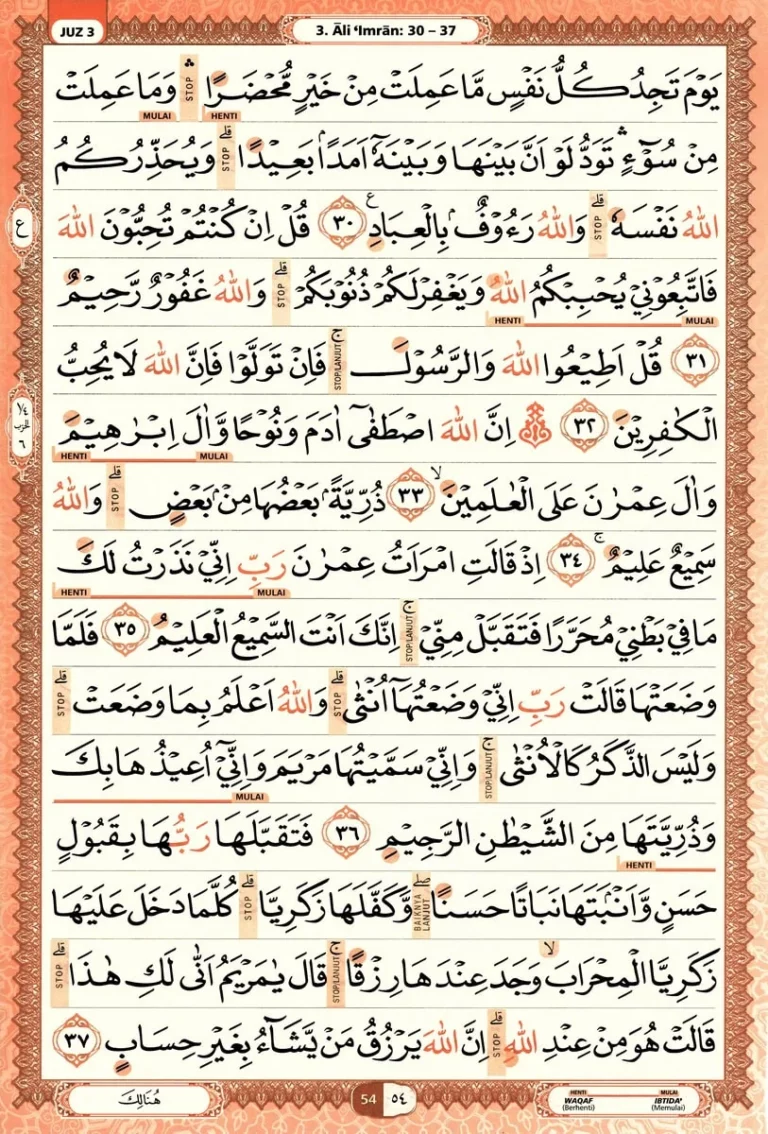 JUZ 3
3. Āli ‘Imrān: 30 – 37
يَوْمَ تَجِدُ كُلُّ نَفْسٍ مَّا عَمِلَتْ مِنْ خَيْرٍ مُّحْضَرًا ۛ STOP وَمَا عَمِلَتْ
MULAI HENTI
مِنْ سُوْۤءٍ ۛ تَوَدُّ لَوْ اَنَّ بَيْنَهَا وَبَيْنَهٗٓ اَمَدًاۢ بَعِيْدًا ۗ STOP وَيُحَذِّرُكُمُ
اللّٰهُ نَفْسَهٗ ۗ STOP وَاللّٰهُ رَءُوْفٌۢ بِالْعِبَادِ ࣖ ٣٠ قُلْ اِنْ كُنْتُمْ تُحِبُّوْنَ اللّٰهَ
ع
فَاتَّبِعُوْنِيْ يُحْبِبْكُمُ اللّٰهُ وَيَغْفِرْ لَكُمْ ذُنُوْبَكُمْ ۗ STOP وَاللّٰهُ غَفُوْرٌ رَّحِيْمٌ
HENTI MULAI
٣١ قُلْ اَطِيْعُوا اللّٰهَ وَالرَّسُوْلَ ۚ STOP/LANJUT فَاِنْ تَوَلَّوْا فَاِنَّ اللّٰهَ لَا يُحِبُّ
الْكٰفِرِيْنَ ٣٢ ۞ اِنَّ اللّٰهَ اصْطَفٰىٓ اٰدَمَ وَنُوْحًا وَّاٰلَ اِبْرٰهِيْمَ
¼ حزب ٦
HENTI MULAI
وَاٰلَ عِمْرٰنَ عَلَى الْعٰلَمِيْنَۙ ٣٣ ذُرِّيَّةًۢ بَعْضُهَا مِنْۢ بَعْضٍ ۗ STOP وَاللّٰهُ
سَمِيْعٌ عَلِيْمٌۚ ٣٤ اِذْ قَالَتِ امْرَاَتُ عِمْرٰنَ رَبِّ اِنِّيْ نَذَرْتُ لَكَ
HENTI MULAI
مَا فِيْ بَطْنِيْ مُحَرَّرًا فَتَقَبَّلْ مِنِّيْ ۚ STOP/LANJUT اِنَّكَ اَنْتَ السَّمِيْعُ الْعَلِيْمُ ٣٥ فَلَمَّا
وَضَعَتْهَا قَالَتْ رَبِّ اِنِّيْ وَضَعْتُهَآ اُنْثٰىۗ STOP وَاللّٰهُ اَعْلَمُ بِمَا وَضَعَتْۗ STOP
وَلَيْسَ الذَّكَرُ كَالْاُنْثٰى ۚ STOP/LANJUT وَاِنِّيْ سَمَّيْتُهَا مَرْيَمَ وَاِنِّيْٓ اُعِيْذُهَا بِكَ
MULAI
وَذُرِّيَّتَهَا مِنَ الشَّيْطٰنِ الرَّجِيْمِ ٣٦ فَتَقَبَّلَهَا رَبُّهَا بِقَبُوْلٍ
HENTI
حَسَنٍ وَّاَنْۢبَتَهَا نَبَاتًا حَسَنًاۖ BAIKNYA LANJUT وَّكَفَّلَهَا زَكَرِيَّا ۗ STOP كُلَّمَا دَخَلَ عَلَيْهَا
زَكَرِيَّا الْمِحْرَابَۙ وَجَدَ عِنْدَهَا رِزْقًا ۚ STOP/LANJUT قَالَ يٰمَرْيَمُ اَنّٰى لَكِ هٰذَا ۗ STOP
قَالَتْ هُوَ مِنْ عِنْدِ اللّٰهِ ۗ STOP اِنَّ اللّٰهَ يَرْزُقُ مَنْ يَّشَاۤءُ بِغَيْرِ حِسَابٍ ٣٧
هُنَالِكَ
54 ٥٤
HENTI MULAI
WAQAF (Berhenti) IBTIDA' (Memulai)